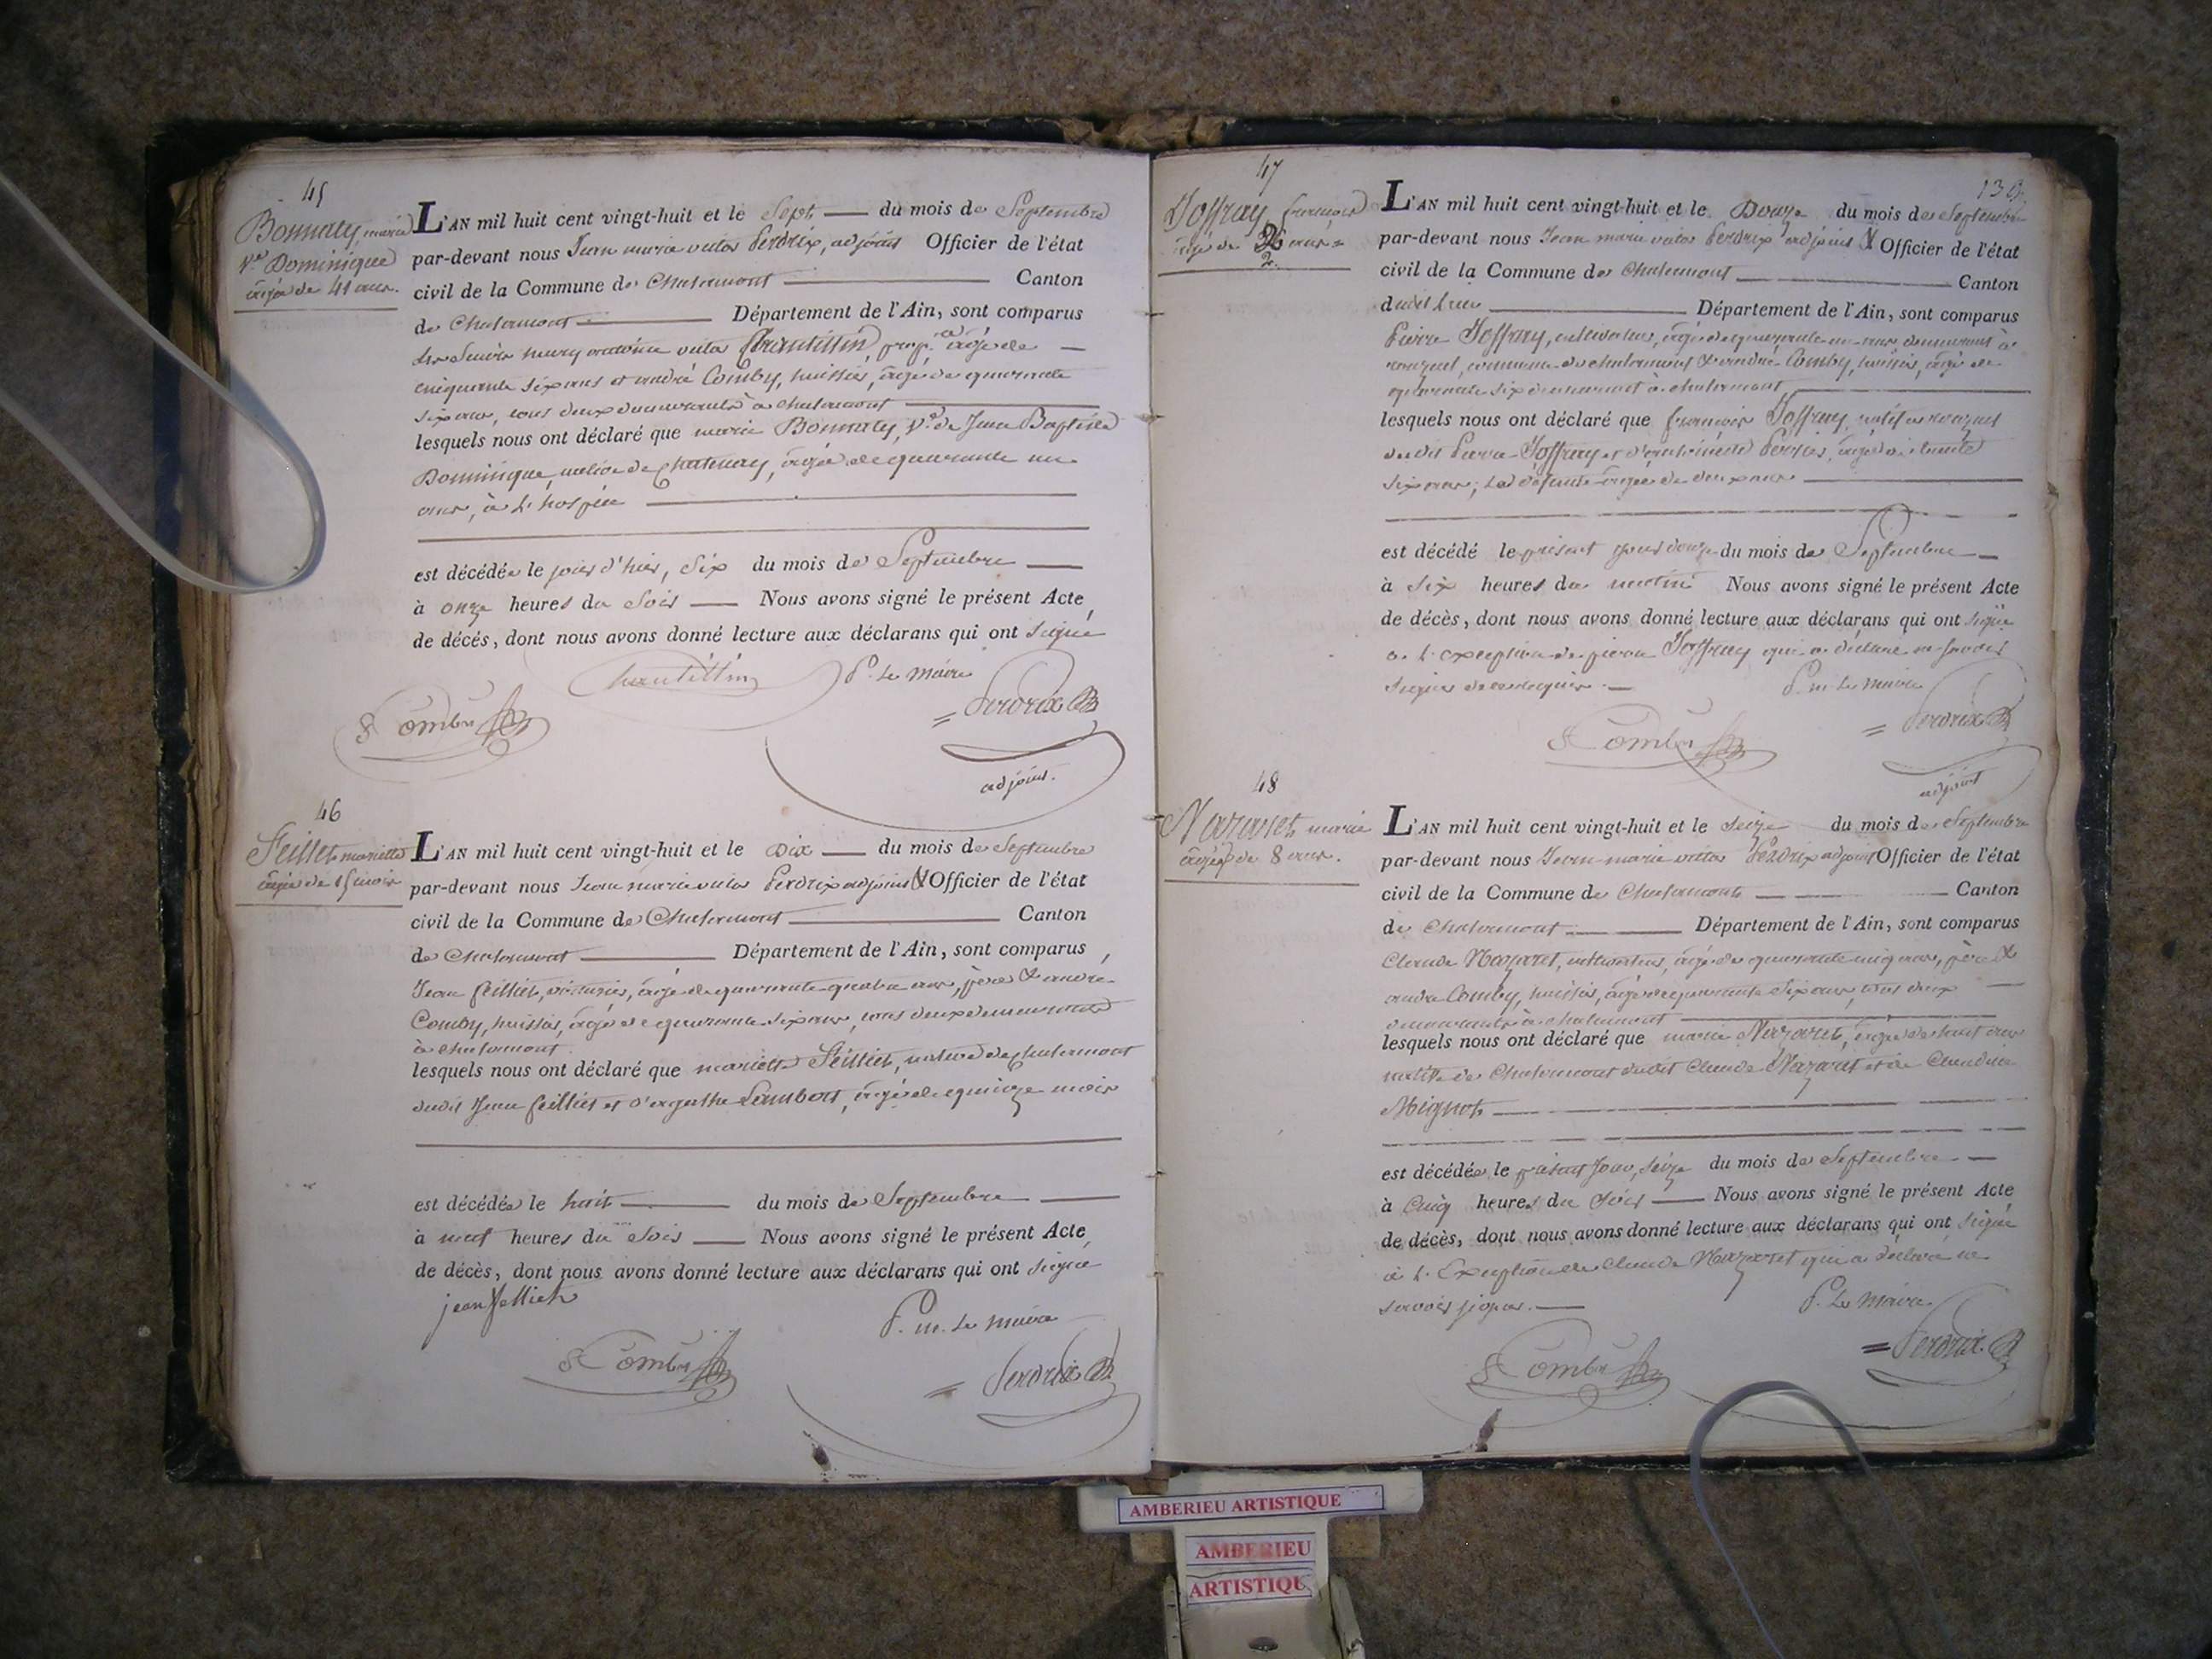 45
Bonnaty, marie
Ve Dominique
âgée de 41 ans.
L'AN mil huit cent vingt-huit et le Sept du mois de Septembre
par-devant nous Jean marie victor Perdrix, adjoint Officier de l'état
civil de la Commune de Chalamont Canton
de Chalamont Département de l'Ain, sont comparus
antoine victor Chantillin, âgé de
cinquante six ans et andré Comby, huissier, âgé de quarante
six ans, tous deux demeurants à chalamont
lesquels nous ont déclaré que marie Bonnaty, Ve de Jean Baptiste
Dominique, native de Chatenay, âgée de quarante un
ans, à l'hospice
est décédée le jour d'hier, Six du mois de Septembre
à onze heures du Soir Nous avons signé le présent Acte
de décés, dont nous avons donné lecture aux déclarans qui ont signé
Chantillin P. Le Maire
Comby Perdrix
adjoint.
46
Feillet mariette
âgée de 15 mois
L'AN mil huit cent vingt-huit et le Dix du mois de Septembre
par-devant nous Jean marie victor Perdrix adjoint Officier de l'état
civil de la Commune de Chalamont Canton
de Chalamont Département de l'Ain, sont comparus
Jean feillet, âgé de quarante quatre ans, père & andré
Comby, huissier, âgé de quarante six ans, tous deux demeurants
à chalamont
lesquels nous ont déclaré que mariette Feillet, native de chalamont
dudit Jean feillet et d'agathe Lambert, âgée de quinze mois
est décédée le huit du mois de Septembre
à neuf heures du Soir Nous avons signé le présent Acte
de décès, dont nous avons donné lecture aux déclarans qui ont signé
jean felliet
P. m. Le maire
Comby
Perdrix
139.
47
Joffray françois
âgé de 2 ans
L'AN mil huit cent vingt-huit et le Douze du mois de Septembre
par-devant nous Jean marie victor Perdrix adjoint Officier de l'état
civil de la Commune de Chalamont Canton
dudit lieu Département de l'Ain, sont comparus
Pierre Joffray, cultivateur, âgé de quarante un ans demeurant à
commune de chalamont & andré Comby, huissier, âgé de
quarante six demeurant à chalamont
lesquels nous ont déclaré que françois Joffray, natif
dudit Pierre Joffray et âgée de trente
six ans; Le défunt âgé de deux ans
est décédé le présent jour douze du mois de Septembre
à Six heures du matin Nous avons signé le présent Acte
de décès, dont nous avons donné lecture aux déclarans qui ont signé
à l'exception de pierre Joffray qui a déclaré ne savoir
signer de ce requis.
P. m. Le maire
Comby Perdrix
adjoint
48
Nazaret marie
âgée de 8 ans.
L'AN mil huit cent vingt-huit et le Seize du mois de Septembre
par-devant nous Jean marie victor Perdrix adjoint Officier de l'état
civil de la Commune de Chalamont Canton
de Chalamont Département de l'Ain, sont comparus
Claude Nazaret, cultivateur, âgé de quarante cinq ans, père &
andré Comby, huissier, âgé de quarante six ans, tous deux
demeurants à chalamont
lesquels nous ont déclaré que marie Nazaret, âgée de huit ans
native de Chalamont dudit Claude Nazaret et de Claudine
Mignot
est décédée le présent Jour, Seize du mois de Septembre
à Cinq heures du Soir Nous avons signé le présent Acte
de décès, dont nous avons donné lecture aux déclarans qui ont signé
à l'Exception de Claude Nazaret qui a déclaré ne
savoir signer.
P. Le Maire
Comby Perdrix
AMBERIEU ARTISTIQUE
AMBERIEU
ARTISTIQU